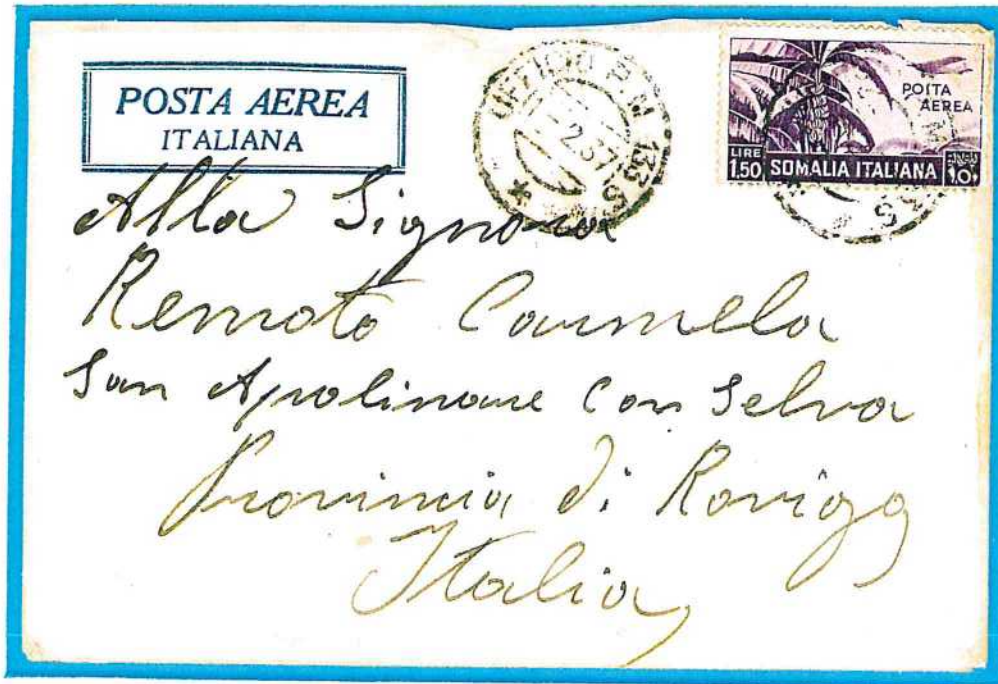 POSTA AEREA
ITALIANA
UFFICIO P.M 133 S
2.37
POSTA
AEREA
LIRE
1.50 SOMALIA ITALIANA
Alla Signora
Remoto Carmela
San Apolinare Con Selva
Provincia di Rovigo
Italia